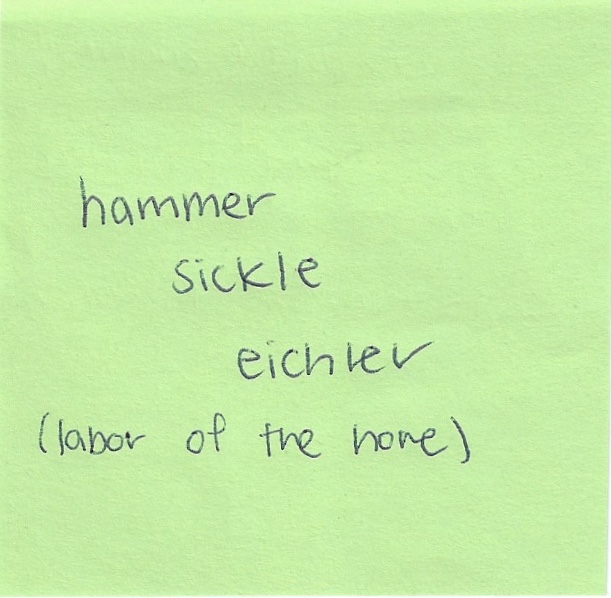 hammer
sickle
eichler
(labor of the home)